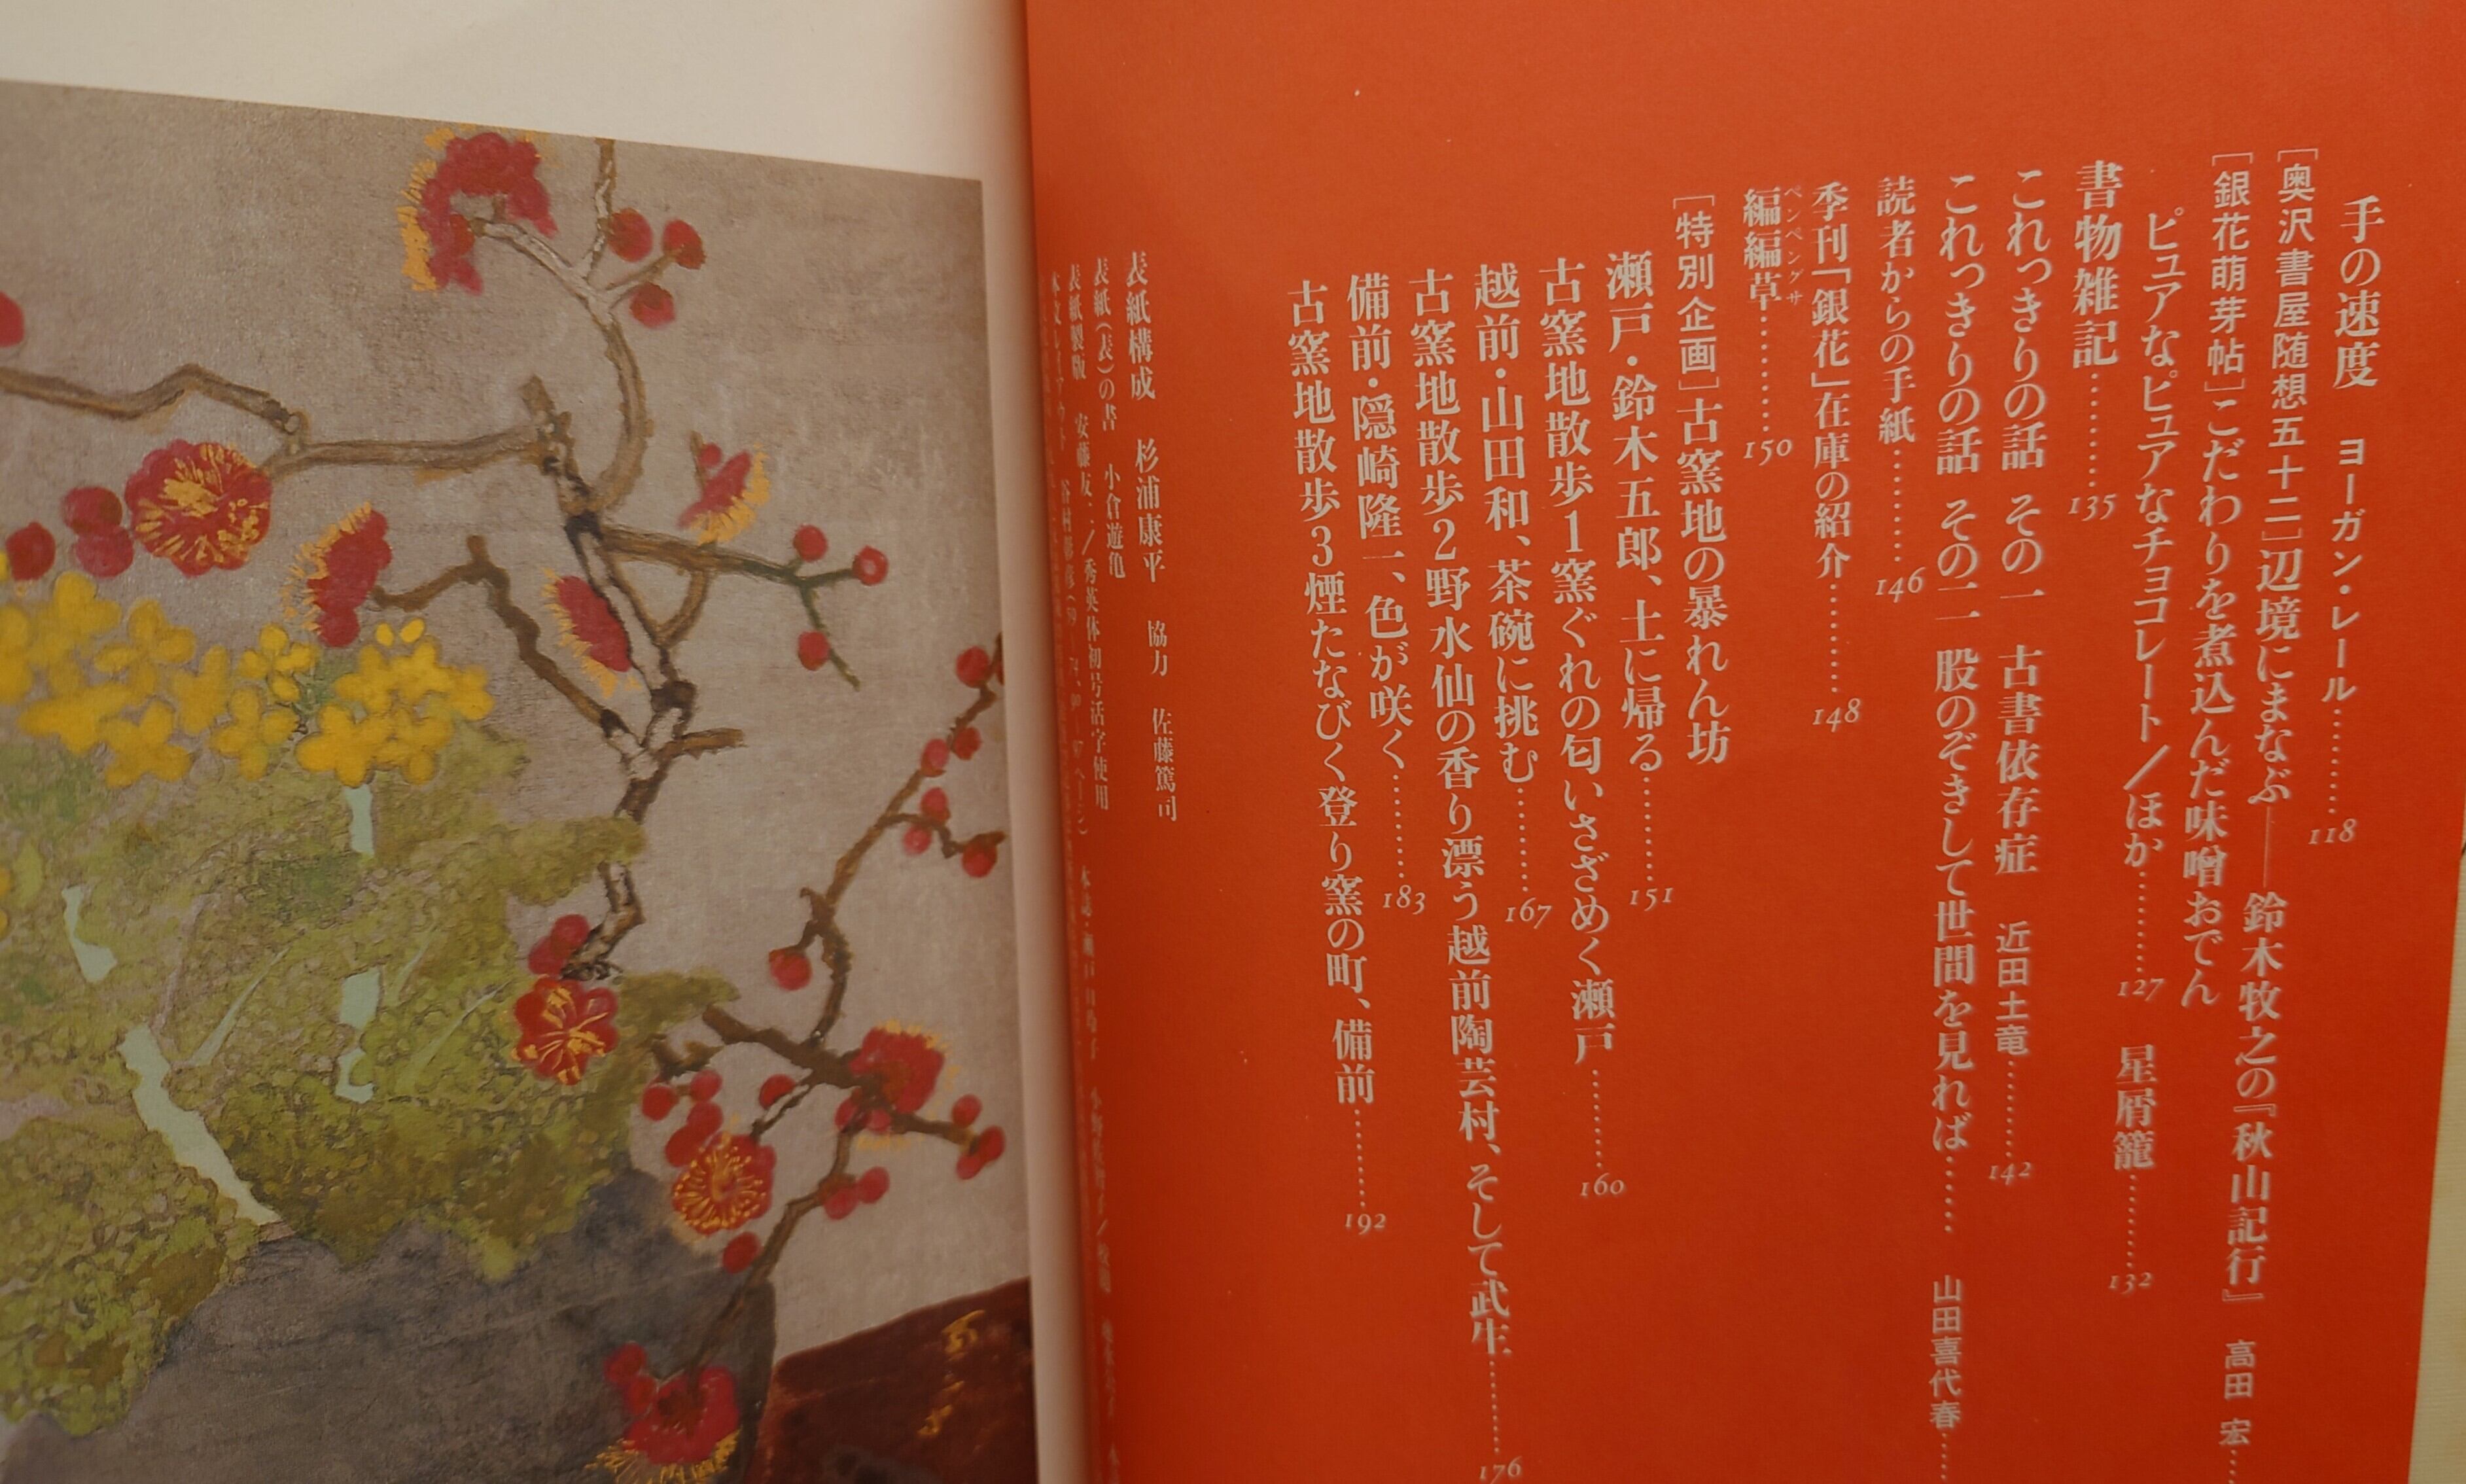 手の速度　ヨーガン・レール………118
［奥沢書屋随想五十二］辺境にまなぶ――鈴木牧之の『秋山記行』　高田 宏…
［銀花萌芽帖］こだわりを煮込んだ味噌おでん
ピュアなピュアなチョコレート／ほか………127　星屑籠………132
書物雑記………135
これっきりの話 その一　古書依存症　近田土竜………142
これっきりの話 その二　股のぞきして世間を見れば……　山田喜代春…
読者からの手紙………146
季刊「銀花」在庫の紹介………148
ペンペングサ
編編草………150
［特別企画］古窯地の暴れん坊
瀬戸・鈴木五郎、土に帰る………151
古窯地散歩1 窯ぐれの匂いさざめく瀬戸………160
越前・山田和、茶碗に挑む………167
古窯地散歩2 野水仙の香り漂う越前陶芸村、そして武生………176
備前・隠崎隆一、色が咲く………183
古窯地散歩3 煙たなびく登り窯の町、備前………192
表紙構成　杉浦康平　協力　佐藤篤司
表紙（表）の書　小倉遊亀
表紙製版　安藤友 ／秀英体初号活字使用